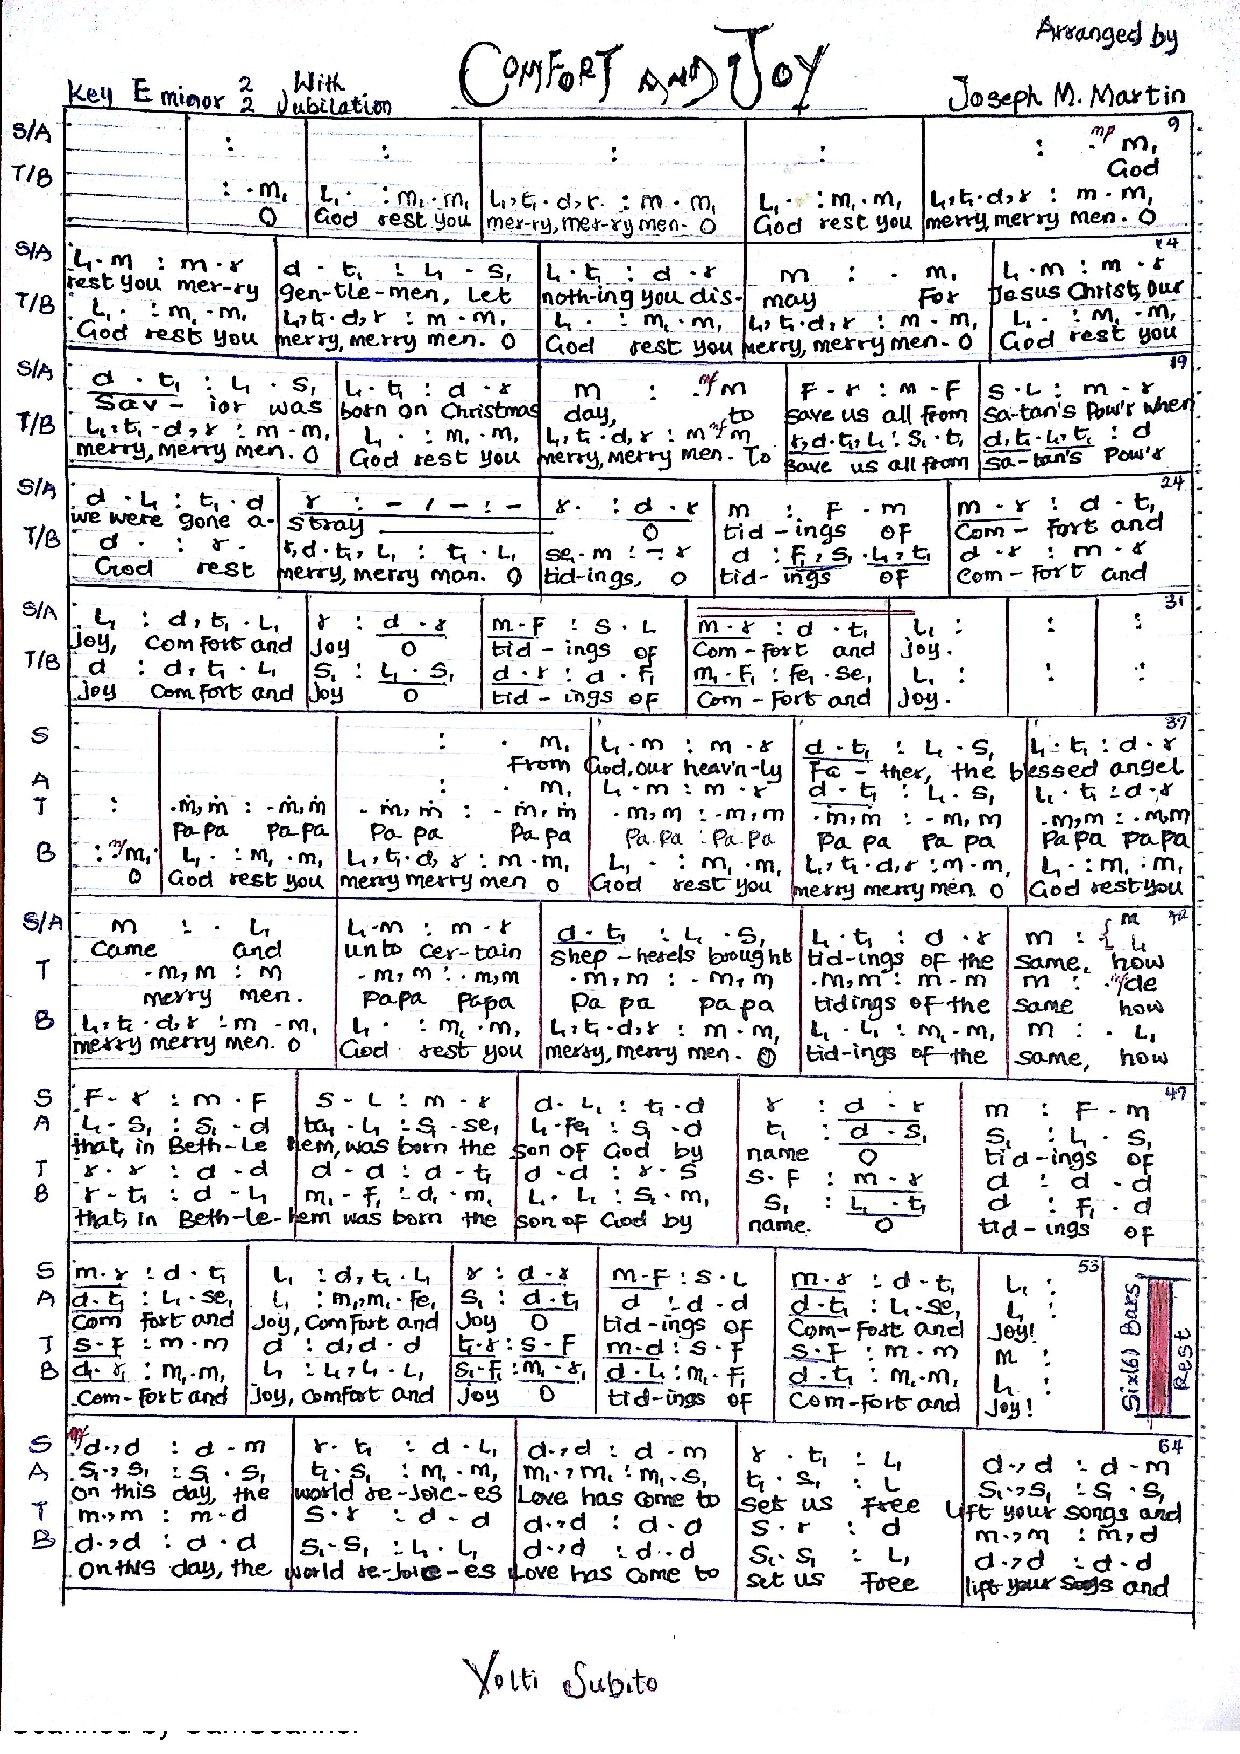 Arranged by
COMFORT AND JOY
Key E minor 2/2 With Jubilation
Joseph M. Martin
S/A : : : : : mp m, 9
God
T/B : . m, L, . : m, . m, L, , t, . d, r : m . m, L, . : m, . m, L, , t, . d, r : m . m,
O God rest you mer-ry, mer-ry men. O God rest you merry merry men. O
S/A L, . m : m . r d . t, : L, . s, L, . t, : d . r m : . m, L, . m : m . r 14
rest you mer-ry gen-tle-men, Let noth-ing you dis- may For Jesus Christ, our
T/B L, . : m, . m, L, , t, . d, r : m . m, L, . : m, . m, L, , t, . d, r : m . m, L, . : m, . m,
God rest you merry, merry men. O God rest you merry, merry men. O God rest you
S/A d . t, : L, . s, L, . t, : d . r m : . mf m F . r : m . F s . L : m . r 19
Sav - ior was born on Christmas day, to save us all from Sa-tan's Pow'r when
T/B L, , t, . d, r : m . m, L, . : m, . m, L, , t, . d, r : m . mf m r, d . t, , L, : s, . t, d, t, . L, , t, : d
merry, merry men. O God rest you merry, merry men. To save us all from Sa-tan's Pow'r
S/A d . L, : t, . d r : - / - : - r . : d . r m : F . m m . r : d . t, 24
we were gone a- stray O tid - ings OF Com - fort and
T/B d . : r . r, d . t, , L, : t, . L, se, . m : - . r d : F, , s, . L, , t, d . r : m . r
God rest merry, merry man. O tid-ings, O tid- ings OF Com - fort and
S/A L, : d, t, . L, r : d . r m . F : s . L m . r : d . t, L, : : : 31
Joy, Comfort and Joy O tid - ings of Com - fort and Joy.
T/B d : d, t, . L, s, : L, . s, d . r : d . F, m, . F, : fe, . se, L, : : :
Joy Comfort and Joy O tid - ings of Com - fort and Joy.
S : . m, L, . m : m . r d . t, : L, . s, L, . t, : d . r 37
From God, our heav'n-ly Fa - ther, the blessed angel
A : . m, L, . m : m . r d . t, : L, . s, L, . t, : d . r
T : . m, m : . m, m . m, m : . m, m . m, m : . m, m . m, m : . m, m . m, m : . m, m
Pa pa Pa pa Pa pa Pa pa Pa pa Pa pa Pa pa Pa pa Pa pa Pa pa
B : mf m, L, . : m, . m, L, , t, . d, r : m . m, L, . : m, . m, L, , t, . d, r : m . m, L, . : m, . m,
O God rest you merry merry men O God rest you merry merry men. O God rest you
S/A m : . L, L, . m : m . r d . t, : L, . s, L, . t, : d . r m : { m L, 42
Came and unto cer-tain Shep - herds brought tid-ings of the same, how
T . m, m : m . m, m : . m, m . m, m : . m, m . m, m : m . m m : . mf de
merry men. Pa pa Pa pa Pa pa Pa pa tidings of the same how
B L, , t, . d, r : m . m, L, . : m, . m, L, , t, . d, r : m . m, L, . L, : m, . m, m : . L,
merry merry men. O God rest you merry, merry men. O tid-ings of the same, how
S F . r : m . F s . L : m . r d . L, : t, . d r : d . r m : F . m 47
A L, . s, : s, . d ta, . L, : s, . se, L, . fe, : s, . d t, : d . s, s, : L, . s,
that, in Beth-Le hem, was born the son of God by name O tid - ings of
T r . r : d . d d . d : d . t, d . d : r . s s . F : m . r d : d . d
B r . t, : d . L, m, . F, : d, . m, L, . L, : s, . m, s, : L, . t, d : F, . d
that, in Beth-le-hem was born the son of God by name. O tid - ings of
S m . r : d . t, L, : d, t, . L, r : d . r m . F : s . L m . r : d . t, L, : 53
A d . t, : L, . se, L, : m, , m, . fe, s, : d . t, d : d . d d . t, : L, . se, L, :
Com fort and Joy, Comfort and Joy O tid - ings of Com-Fort and Joy!
T s . F : m . m d : d, d . d t, . r : s . F m . d : s . F s . F : m . m m :
B d . r, : m, . m, L, : L, , L, . L, s, . F, : m, . r, d . L, : m, . F, d . t, : m, . m, L, :
Com-fort and Joy, Comfort and Joy O tid-ings of Com-fort and Joy!
Six(6) Bars Rest
S mf d . , d : d . m r . t, : d . L, d . , d : d . m r . t, : L, d . , d : d . m 64
A s, . , s, : s, . s, t, . s, : m, . m, m, . , m, : m, . s, t, . s, : L, s, . , s, : s, . s,
on this day, the world re-joic-es Love has come to set us Free Lift your songs and
T m . , m : m . d s . r : d . d d . , d : d . d s . r : d m . , m : m, d
B d . , d : d . d s, . s, : L, . L, d . , d : d . d s, . s, : L, d . , d : d . d
on this day, the world re-joic-es Love has come to set us Free lift your songs and
Volti Subito
Scanned by CamScanner